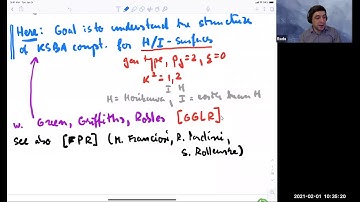 Here: Goal is to understand the structure
of KSBA compt. for H/I-surfaces
gen type, pg=2, q=0
K²=1,2
I H
H = Horikawa, I = costs than H
w. Green, Griffiths, Robles [GGLR]
See also [FPR] (M. Franciosi, R. Pardini,
S. Rollenske)
Radu
2021-02-01 10:35:20